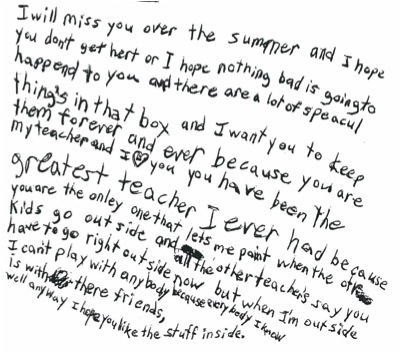 I will miss you over the summer and I hope
you don't get hert or I hope nothing bad is going to
happend to you and there are a lot of speacul
things in that box and I want you to keep
them forever and ever because you are
my teacher and I ♡ you you have been the
greatest teacher I ever had because
you are the onley one that lets me paint when the other
Kids go out side and all the other teacher's say you
have to go right out side now but when I'm out side
I can't play with anybody because everybody I know
is with there friends,
well anyway I hope you like the stuff inside.